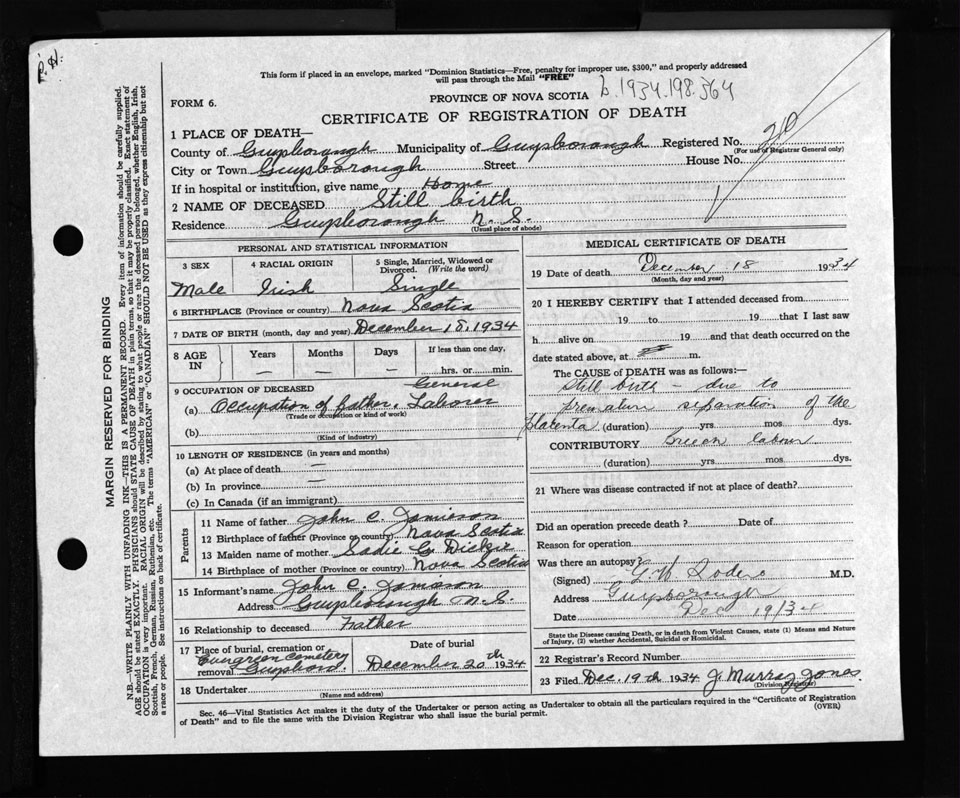 P. H.
This form if placed in an envelope, marked "Dominion Statistics—Free, penalty for improper use, $300," and properly addressed
will pass through the Mail "FREE"
b.1934.198.564
PROVINCE OF NOVA SCOTIA
FORM 6.
CERTIFICATE OF REGISTRATION OF DEATH
MARGIN RESERVED FOR BINDING
N.B.—WRITE PLAINLY WITH UNFADING INK—THIS IS A PERMANENT RECORD. Every item of information should be carefully supplied.
AGE should be stated EXACTLY. PHYSICIANS should STATE CAUSE OF DEATH in plain terms, so that it may be properly classified. Exact statement of
OCCUPATION is very important. RACIAL ORIGIN will be described by stating to what people or race the deceased person belonged, whether English, Irish,
Scottish, French, German, Russian, Ruthenian, etc. The terms "AMERICAN" or "CANADIAN" SHOULD NOT BE USED as they express citizenship but not
a race or people. See instructions on back of certificate.
1 PLACE OF DEATH—
County of Guysborough Municipality of Guysborough Registered No.
(For use of Registrar General only)
City or Town Guysborough Street House No.
If in hospital or institution, give name Home
2 NAME OF DECEASED Still birth
Residence Guysborough N. S.
(Usual place of abode)
PERSONAL AND STATISTICAL INFORMATION
3 SEX
4 RACIAL ORIGIN
5 Single, Married, Widowed or
Divorced. (Write the word)
Male Irish Single
6 BIRTHPLACE (Province or country) Nova Scotia
7 DATE OF BIRTH (month, day and year) December 18, 1934
8 AGE IN
Years Months Days If less than one day,
— — — hrs. or min.
9 OCCUPATION OF DECEASED General
(a) Occupation of father, Laborer
(Trade or occupation or kind of work)
(b)
(Kind of industry)
10 LENGTH OF RESIDENCE (in years and months)
(a) At place of death —
(b) In province —
(c) In Canada (if an immigrant)
Parents
11 Name of father John C. Jamieson
12 Birthplace of father (Province or country) Nova Scotia
13 Maiden name of mother Sadie Dickie
14 Birthplace of mother (Province or country) Nova Scotia
15 Informant's name John C. Jamieson
Address Guysborough N.S.
16 Relationship to deceased Father
17 Place of burial, cremation or removal Date of burial
Evergreen Cemetery
Guysboro December 20th 1934
18 Undertaker
(Name and address)
MEDICAL CERTIFICATE OF DEATH
19 Date of death December 18 1934
(Month, day and year)
20 I HEREBY CERTIFY that I attended deceased from
19 to 19 that I last saw
h alive on 19 and that death occurred on the
date stated above, at m.
The CAUSE OF DEATH was as follows:—
Still birth — due to
premature separation of the
placenta (duration) yrs. mos. dys.
CONTRIBUTORY Breech labour
(duration) yrs. mos. dys.
21 Where was disease contracted if not at place of death?
Did an operation precede death ? Date of
Reason for operation
Was there an autopsy?
(Signed) M.D.
Address Guysborough
Date Dec 19/34
State the Disease causing Death, or in death from Violent Causes, state (1) Means and Nature
of Injury, (2) whether Accidental, Suicidal or Homicidal.
22 Registrar's Record Number
23 Filed Dec. 19th 1934 J. Murray Jones
(Division Registrar)
Sec. 46—Vital Statistics Act makes it the duty of the Undertaker or person acting as Undertaker to obtain all the particulars required in the "Certificate of Registration
of Death" and to file the same with the Division Registrar who shall issue the burial permit.
(OVER)